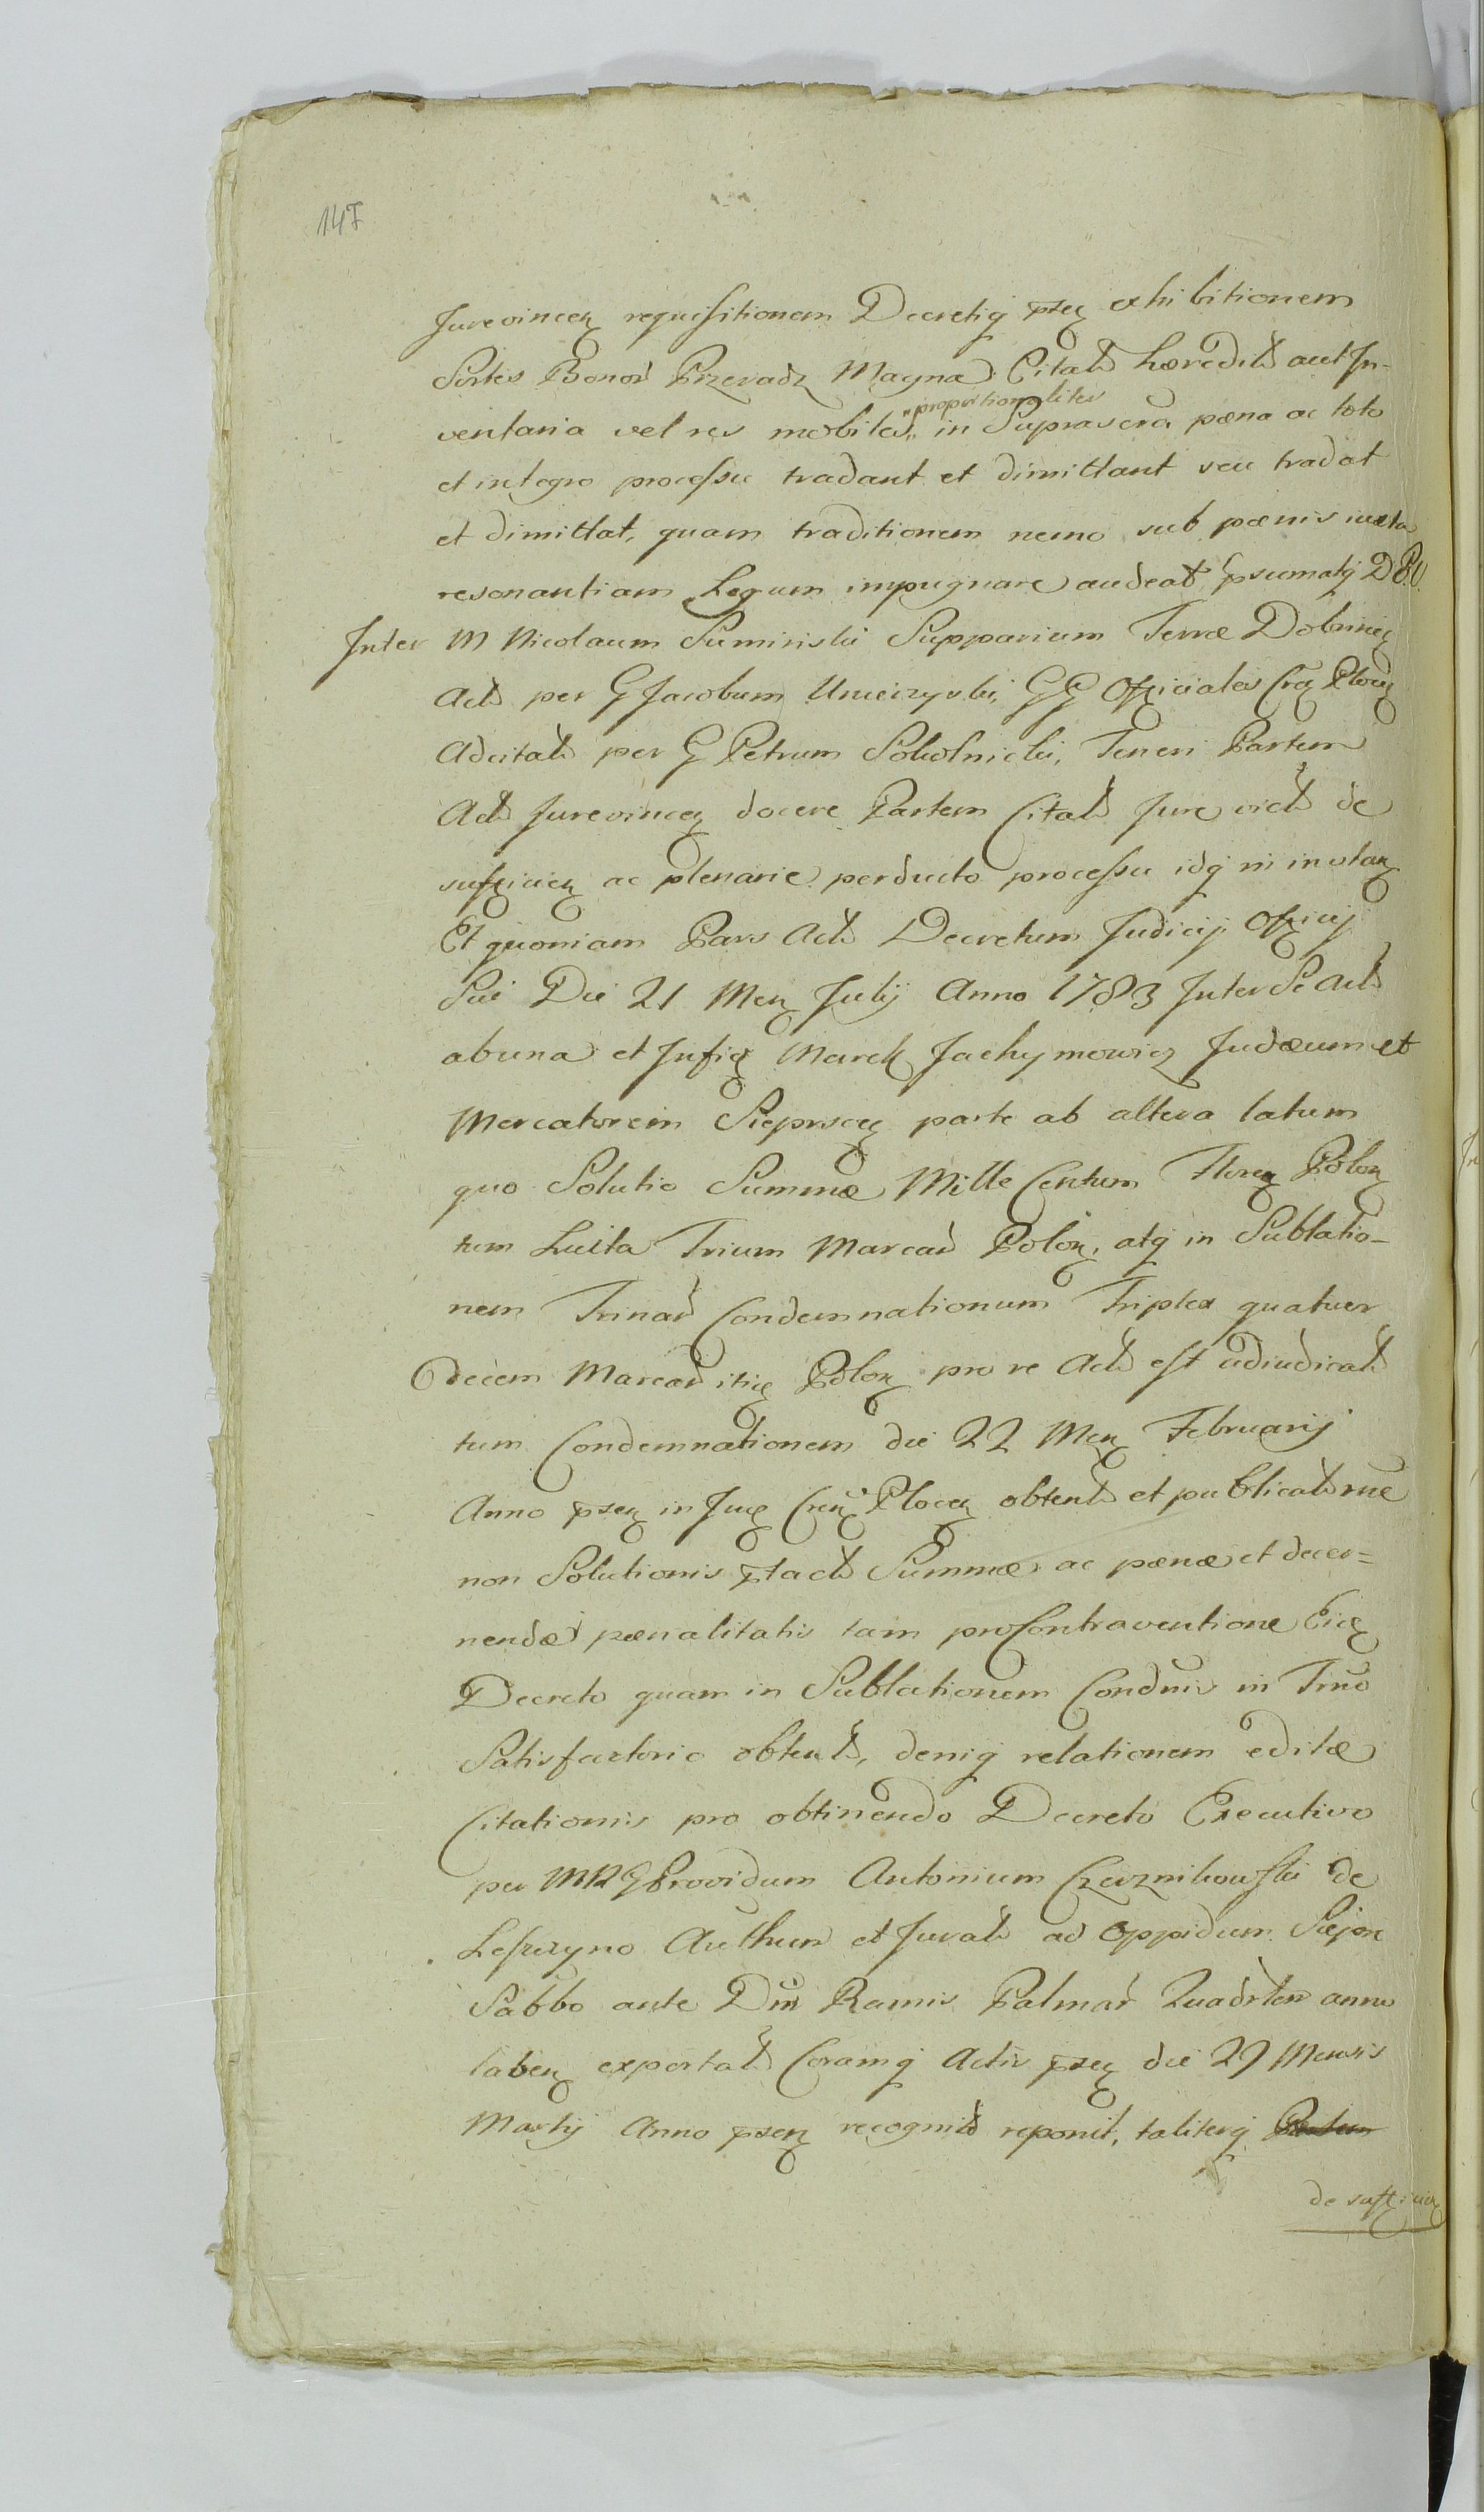 147
Jurevincen requisitionem Decretiq psen exhibitionem
Sortis Bonor Przeradz Magna Citat hæredit aut In-
ventaria vel res mobiles "proportionaliter" in Suprascra pæna ac toto
et integro processu tradant et dimittant seu tradat
et dimittat, quam traditionem nemo sub pænis iuxta
resonantiam Legum impugnare audeat psumatq
Inter M Nicolaum Suminski Supparium Terræ Dobrinen
Act per G Jacobum Umieizyski, GG Officiales Plocen
Adcitat per G Petrum Sokolnicki, Teneri Partem
Act Jurevincen docere Partem Citat Jure vict de
sufficien ac plenarie perducto processu idq in instan
Et quoniam Pars Act Decretum Judicij Officij
Sui Die 21 Men Julij Anno 1783 Inter Se Act
ab una et Infid Marek Jachymowicz Judæum et
Mercatorem Sieprscen parte ab altera latum
quo Solutio Summæ Mille Centum Floren Polon
tum Luita Trium Marcar Polon, atq in Sublatio-
nem Trinar Condemnationum Triplex quatuor
decem Marcar itid Polon pro re Act est adiudicat
tum Condemnationem die 22 Men Februarij
Anno psen in Plocen obtent et publicat rne
non Solutionis ptact Summæ ac pænæ et decer=
nendæ pænalitatis tam pro Contraventione Eid
Decreto quam in Sublationem Condnis in Trno
Satisfactorio obtent, deniq relationem editæ
Citationis pro obtinendo Decreto Executivo
per Providum Antonium Czerznikowski de
Leszczyno Authen et Jurat ad Oppidum Siepre
Sabbo ante Dnm Ramis Palmar Quadrlem anno
laben exportat Coramq Actis psen die 27 Mensis
Martij Anno psen recognit reponit, taliterq Partem
de sufficien